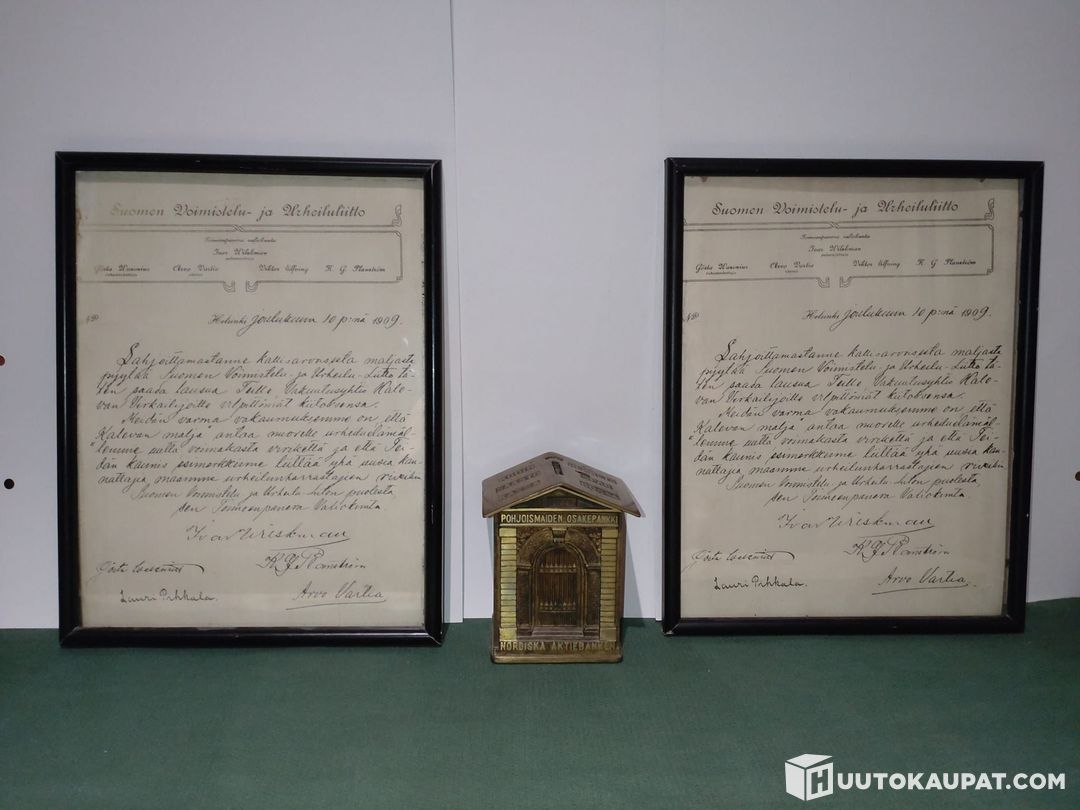 Suomen Voimistelu- ja Urheiluliitto
Toimeenpaneva valiokunta
Ivar Wilskman
Gösta Wasenius Arvo Vartia Viktor Elfving K. G. Planström
No
Helsinki joulukuun 10 p:nä 1909.
Lahjoittamastanne kallisarvoisesta maljasta
pyytää Suomen Voimistelu- ja Urheilu-Liitto tä-
ten saada lausua Teille, Vakuutusyhtiö Kale-
van Virkailijoille vilpittömät kiitoksensa.
Meidän varma vakaumuksemme on että
Kalevan malja antaa nuorelle urheiluelämäl-
lemme yhä voimakasta virikettä ja että Tei-
dän kaunis esimerkkinne liittää yhä uusia kan-
nattajia maamme urheilunharrastajien riveihin
Suomen Voimistelu- ja Urheilu-liiton puolesta,
sen Toimeenpaneva Valiokunta.
Ivar Wilskman
K. G. Planström
Gösta Wasenius
Lauri Pihkala.
Arvo Vartia
POHJOISMAIDEN OSAKEPANKKI
NORDISKA AKTIEBANKEN
Suomen Voimistelu- ja Urheiluliitto
Toimeenpaneva valiokunta
Ivar Wilskman
Gösta Wasenius Arvo Vartia Viktor Elfving K. G. Planström
No
Helsinki joulukuun 10 p:nä 1909.
Lahjoittamastanne kallisarvoisesta maljasta
pyytää Suomen Voimistelu- ja Urheilu-Liitto tä-
ten saada lausua Teille, Vakuutusyhtiö Kale-
van Virkailijoille vilpittömät kiitoksensa.
Meidän varma vakaumuksemme on että
Kalevan malja antaa nuorelle urheiluelämäl-
lemme yhä voimakasta virikettä ja että Tei-
dän kaunis esimerkkinne liittää yhä uusia kan-
nattajia maamme urheilunharrastajien riveihin
Suomen Voimistelu- ja Urheilu-liiton puolesta,
sen Toimeenpaneva Valiokunta.
Ivar Wilskman
K. G. Planström
Gösta Wasenius
Lauri Pihkala.
Arvo Vartia
HUUTOKAUPAT.COM